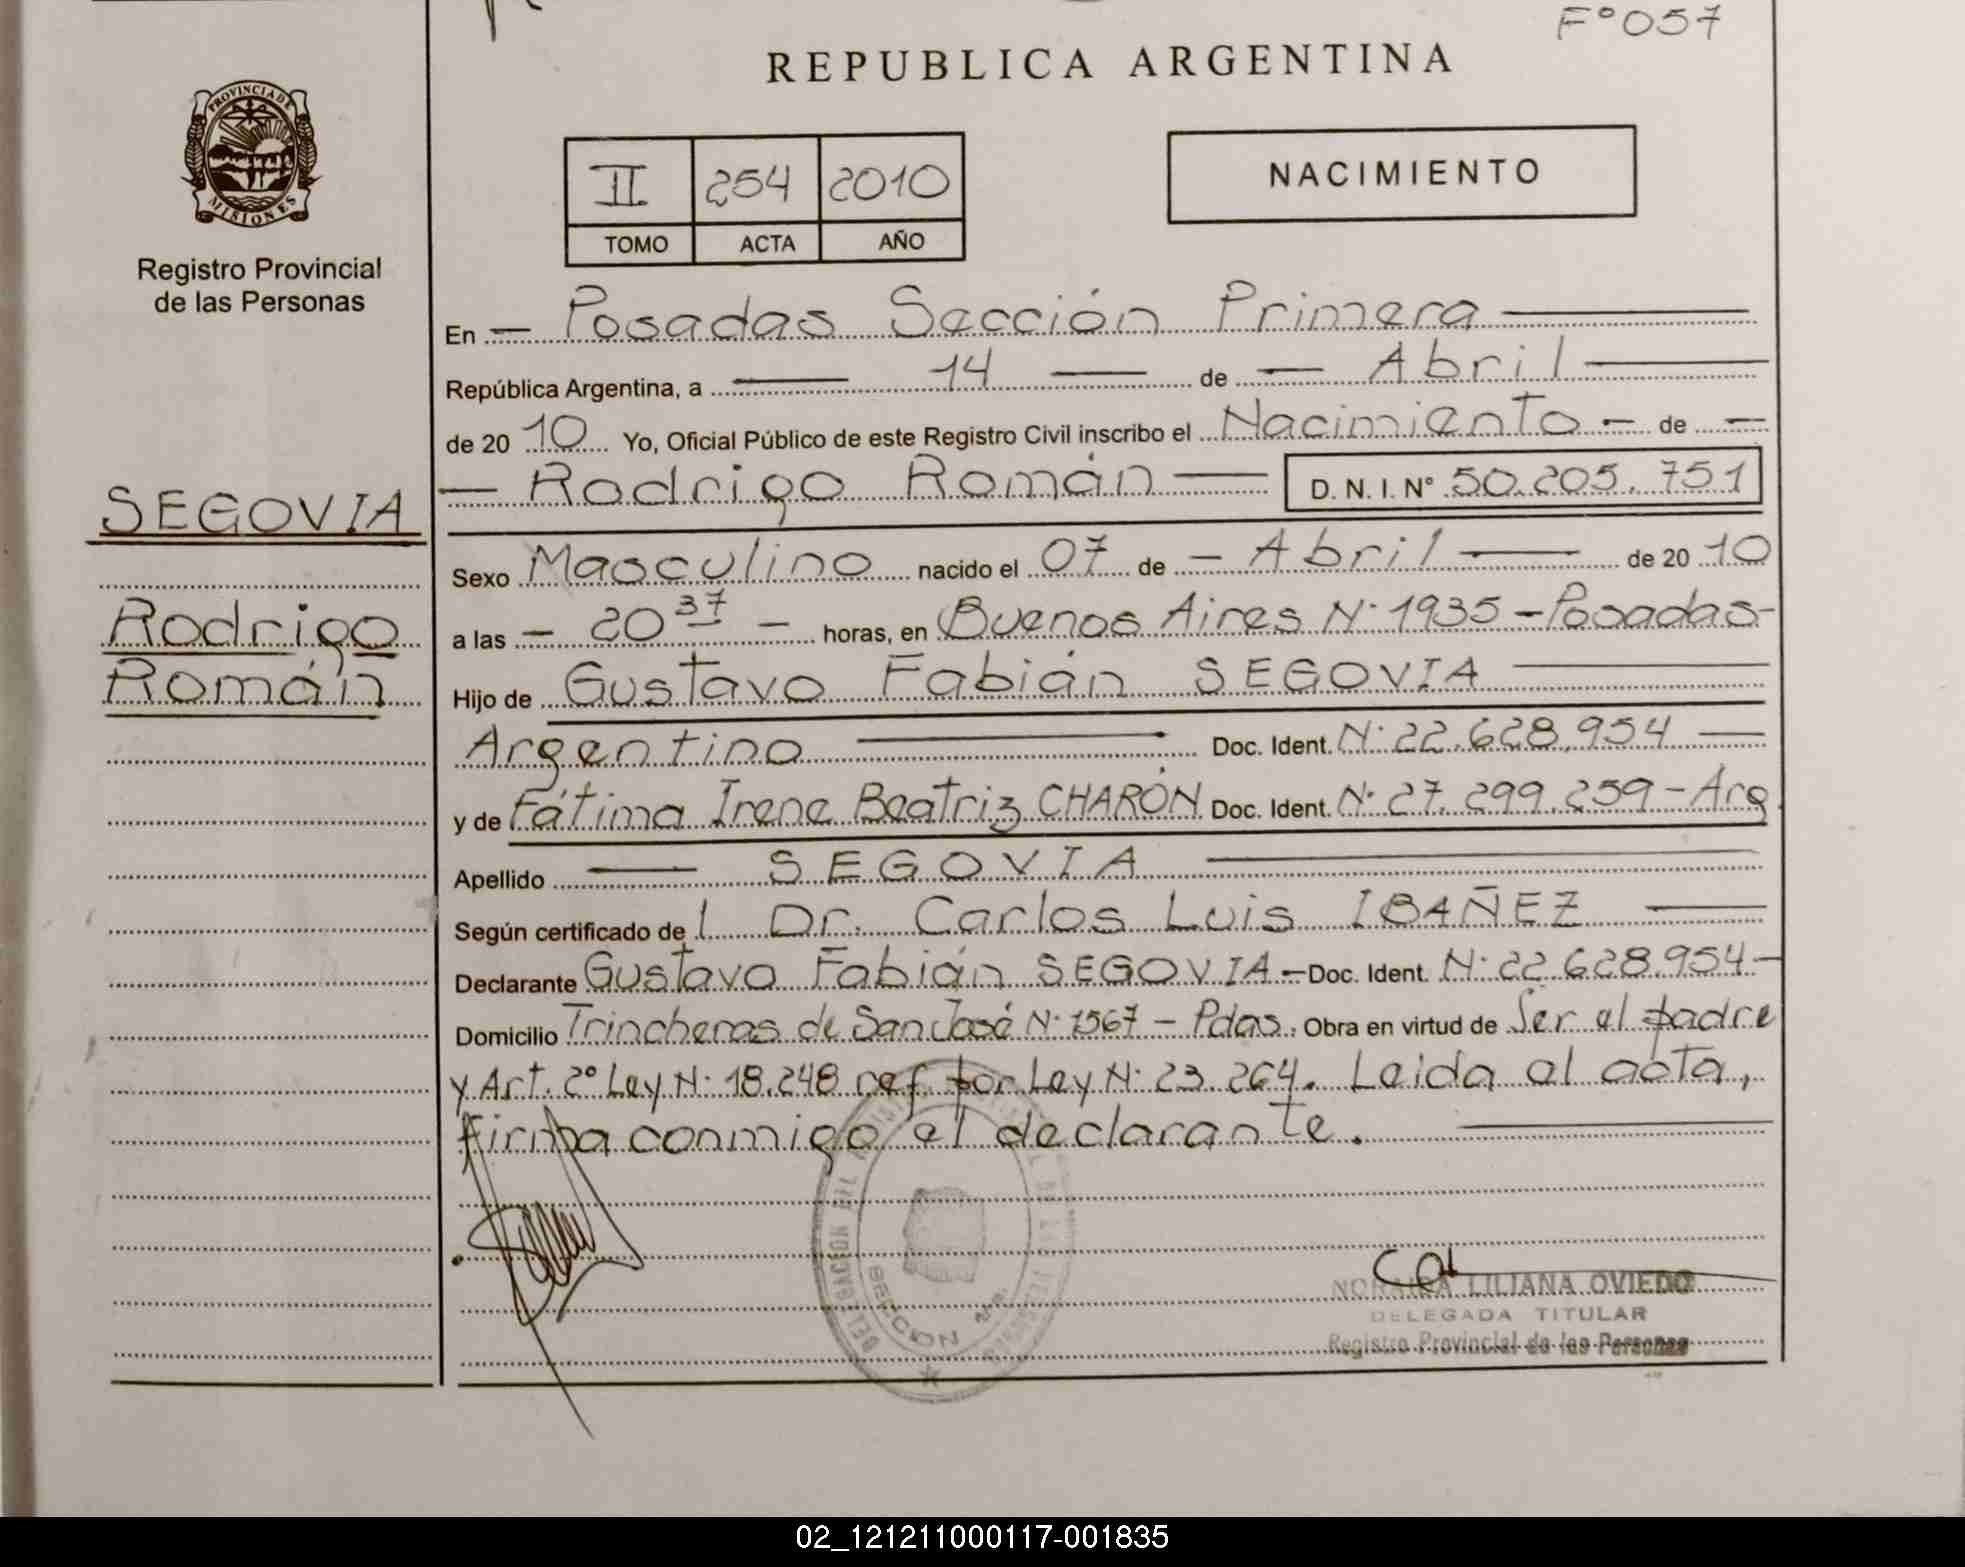 F° 057
REPUBLICA ARGENTINA
PROVINCIA DE MISIONES
Registro Provincial
de las Personas
II 254 2010
TOMO ACTA AÑO
NACIMIENTO
En — Posadas Sección Primera —
República Argentina, a — 14 — de — Abril —
de 20 10 Yo, Oficial Público de este Registro Civil inscribo el Nacimiento — de —
— Rodrigo Román — D. N. I. N° 50.205.751
SEGOVIA
Rodrigo
Román
Sexo Masculino nacido el 07 de — Abril — de 20 10
a las — 20 37 — horas, en Buenos Aires N° 1935 – Posadas –
Hijo de Gustavo Fabián SEGOVIA —
Argentino — Doc. Ident. N° 22.628.954 —
y de Fátima Irene Beatriz CHARÓN Doc. Ident. N° 27.299.259 – Arg.
Apellido — SEGOVIA —
Según certificado de l Dr. Carlos Luis IBAÑEZ —
Declarante Gustavo Fabián SEGOVIA – Doc. Ident. N° 22.628.954 –
Domicilio Trincheras de San José N° 1567 – Pdas. Obra en virtud de Ser el padre
y Art. 2° Ley N° 18.248 ref. por Ley N° 23.264. Leida el acta,
firma conmigo el declarante. —
LILIANA OVIEDO
DELEGADA TITULAR
Registro Provincial de las Personas
02_121211000117-001835